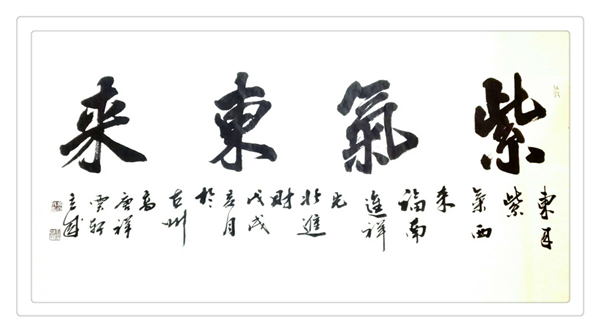 紫氣東來
東来
紫
氣西
来
福南
進祥
光
北進
財
戊戌
亥月
於
古州
高
祥
雲軒